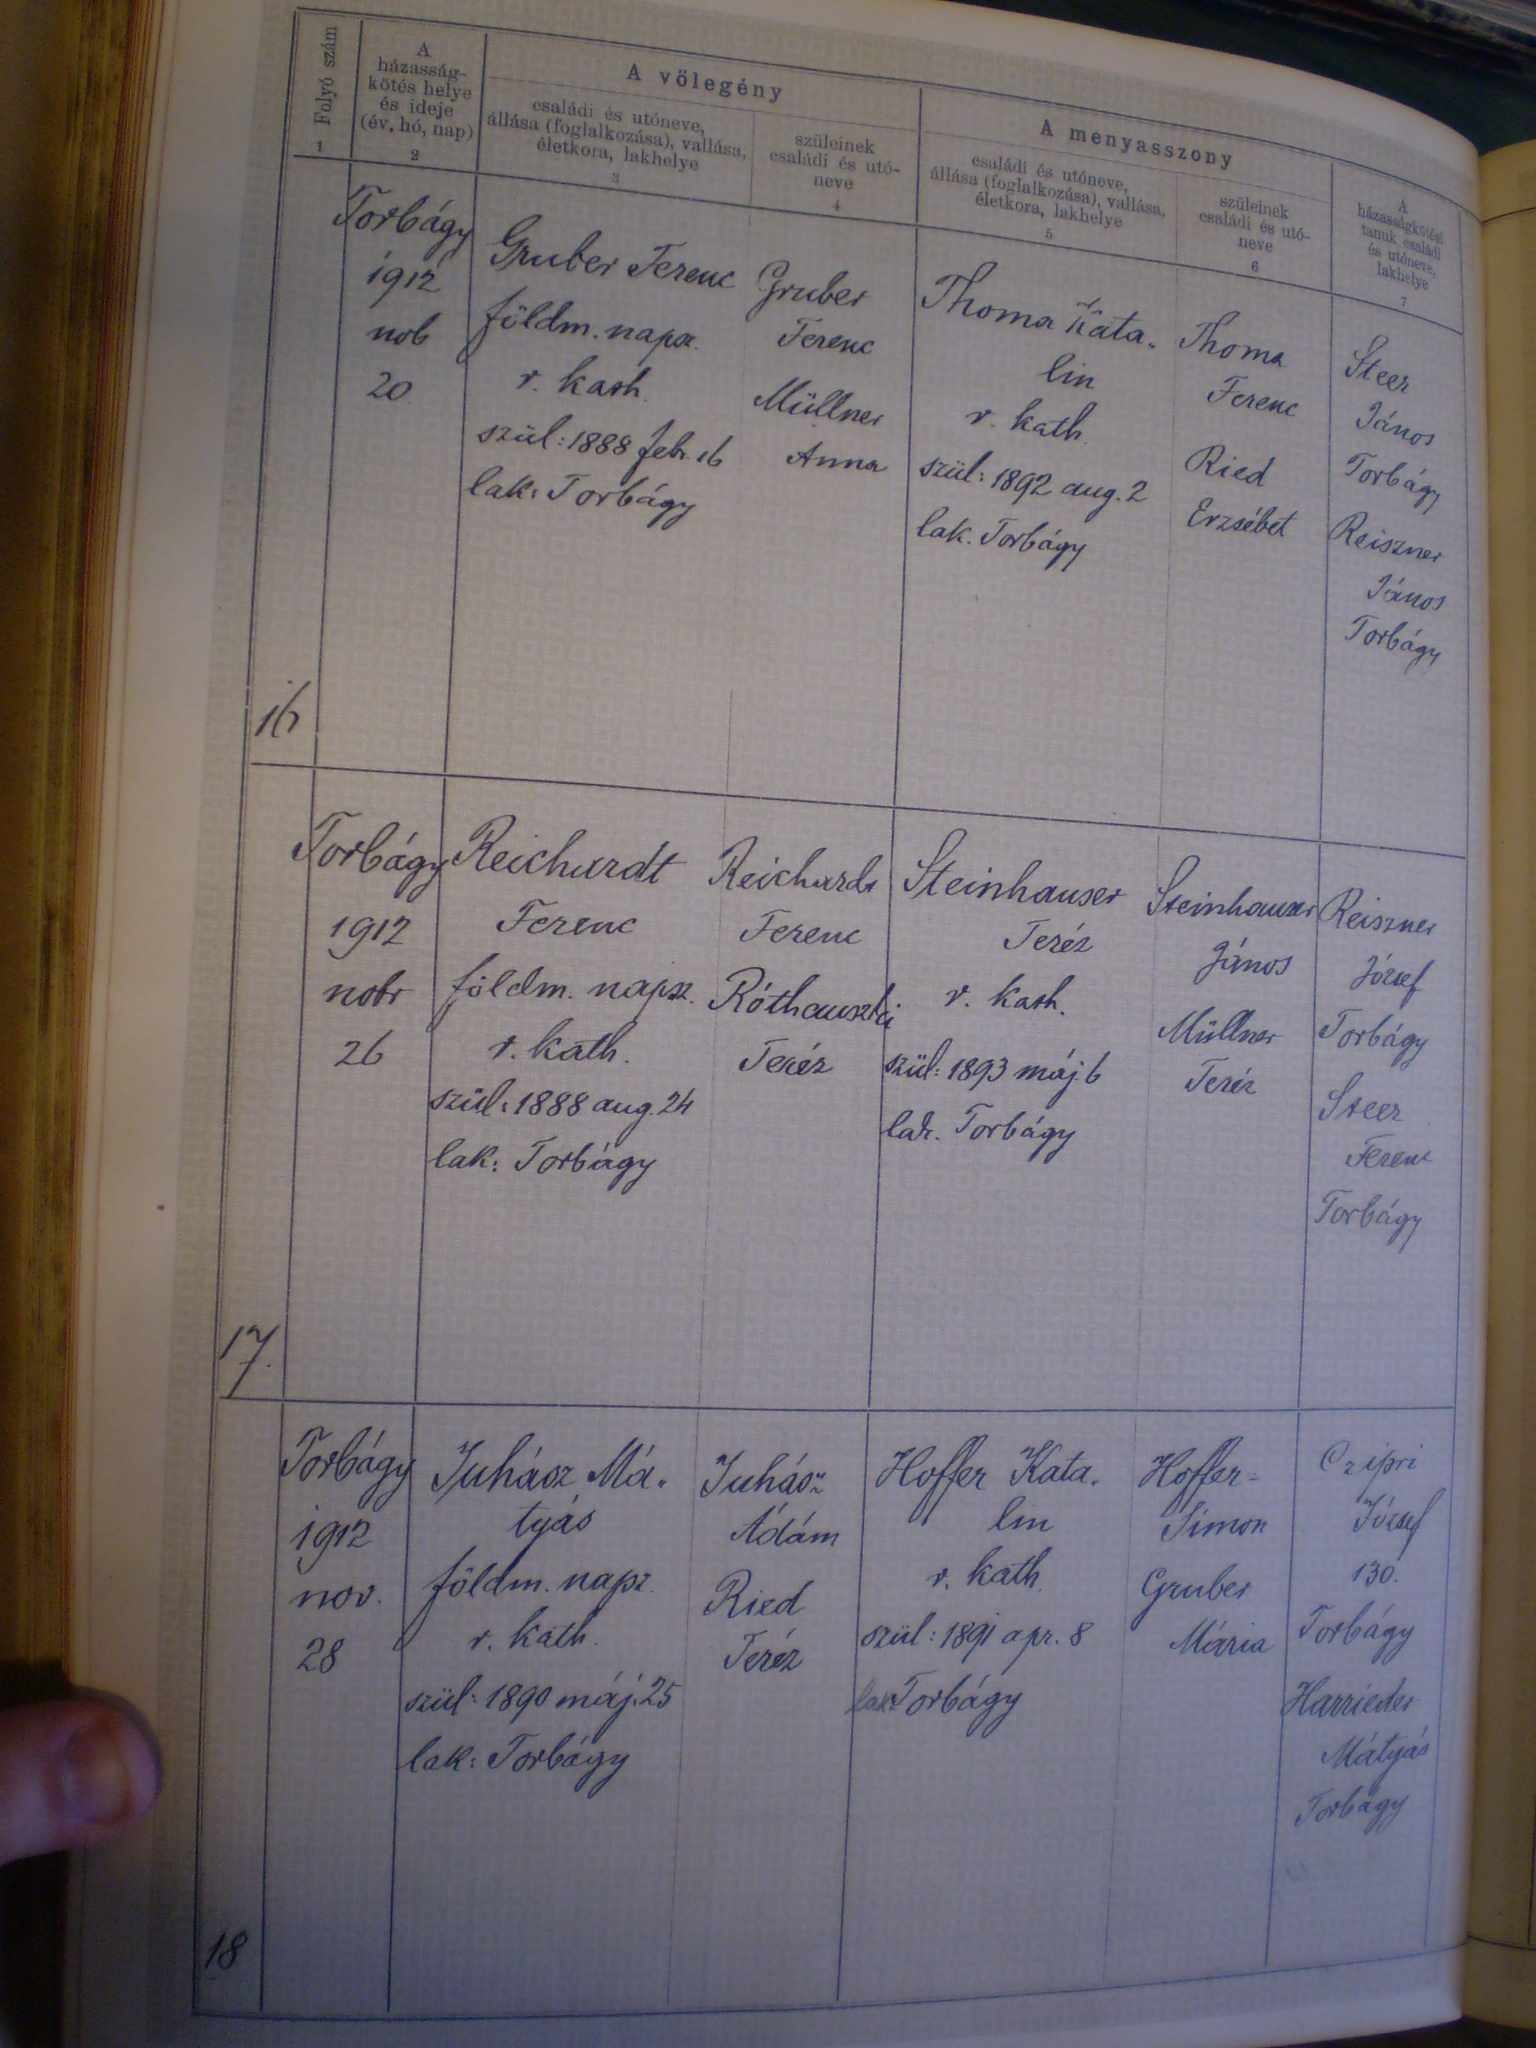 Folyó szám
1
A
házasság-
kötés helye
és ideje
(év, hó, nap)
2
A vőlegény
családi és utóneve,
állása (foglalkozása), vallása,
életkora, lakhelye
3
szüleinek
családi és utó-
neve
4
A menyasszony
családi és utóneve,
állása (foglalkozása), vallása,
életkora, lakhelye
5
szüleinek
családi és utó-
neve
6
A
házasságkötési
tanuk családi
és utóneve,
lakhelye
7
16
Torbágy
1912
nob
20.
Gruber Ferenc
földm. napsz.
r. kath.
szül: 1888 febr. 16
lak: Torbágy
Gruber
Ferenc
Müllner
Anna
Thoma Kata-
lin
r. kath.
szül: 1892 aug. 2
lak. Torbágy
Thoma
Ferenc
Ried
Erzsébet
Steer
János
Torbágy
Reiszner
János
Torbágy
17.
Torbágy
1912
nobr
26
Reichardt
Ferenc
földm. napsz.
r. kath.
szül: 1888 aug. 24
lak: Torbágy
Reichardt
Ferenc
Róthauszki
Teréz
Steinhauser
Teréz
r. kath.
szül: 1893 máj. 6
lak. Torbágy
Steinhauser
János
Müllner
Teréz
Reiszner
József
Torbágy
Steer
Ferenc
Torbágy
18
Torbágy
1912
nov.
28
Juhász Má-
tyás
földm. napsz.
r. kath.
szül: 1890 máj. 25
lak: Torbágy
Juhász
Ádám
Ried
Teréz
Hoffer Kata-
lin
r. kath.
szül: 1891 apr. 8
lak: Torbágy
Hoffer
Simon
Gruber
Mária
Czipri
József
130.
Torbágy
Harrieder
Mátyás
Torbágy